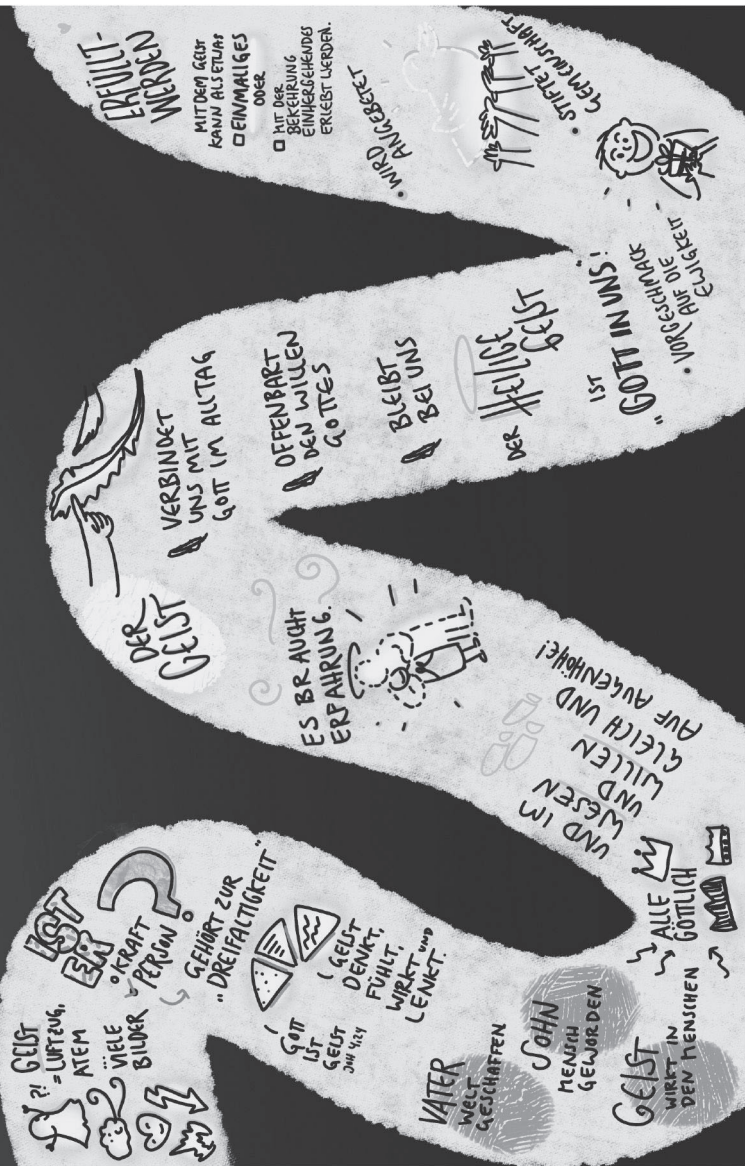 GEIST
?!
= LUFTZUG,
ATEM
VIELE
BILDER
IST
ER
KRAFT
PERSON?
GEHÖRT ZUR
"DREIFALTIGKEIT"
GOTT
IST
GEIST
JOH 4:24
GEIST
DENKT,
FÜHLT,
WIRKT UND
LENKT.
VATER
WELT
GESCHAFFEN
SOHN
MENSCH
GEWORDEN
GEIST
WIRKT IN
DEN MENSCHEN
ALLE
GÖTTLICH
UND IM
WESEN
UND
WILLEN
GLEICH UND
AUF AUGENHÖHE!
ES BRAUCHT
ERFAHRUNG.
DER
GEIST
VERBINDET
UNS MIT
GOTT IM ALLTAG
OFFENBART
DEN WILLEN
GOTTES
BLEIBT
BEI UNS
DER HEILIGE
GEIST
IST
"GOTT IN UNS!"
• VORGESCHMACK
AUF DIE
EWIGKEIT
• STIFTET
GEMEINSCHAFT
• WIRD
ANGEBETET
ERFÜLLT-
WERDEN
MIT DEM GEIST
KANN ALS ETWAS
□ EINMALIGES
ODER
□ MIT DER
BEKEHRUNG
EINHERGEHENDES
ERLEBT WERDEN.